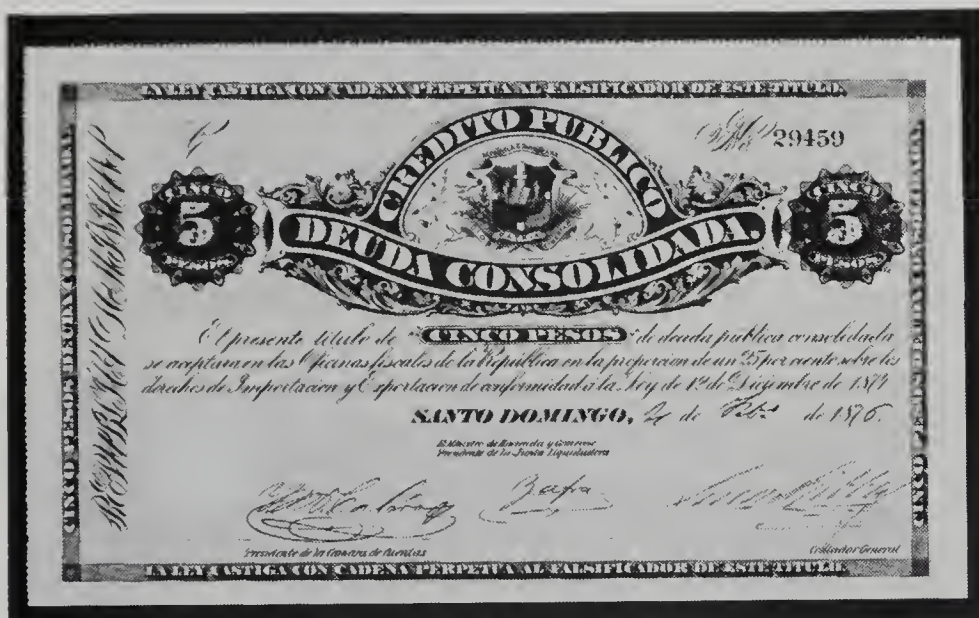 LA LEY CASTIGA CON CADENA PERPETUA AL FALSIFICADOR DE ESTE TITULO.
29459
CREDITO PUBLICO
DEUDA CONSOLIDADA.
CINCO
5
PESOS
CINCO
5
PESOS
CINCO PESOS DEUDA CONSOLIDADA.
REPUBLICA DOMINICANA
CINCO PESOS DEUDA CONSOLIDADA.
El presente titulo de CINCO PESOS de deuda publica consolidada
se aceptara en las Oficinas fiscales de la Republica en la proporcion de un 25 por ciento sobre los
derechos de Importacion y Exportacion de conformidad á la Ley de 1º de Diciembre de 1874
SANTO DOMINGO, 2 de Febo de 1876.
El Ministro de Hacienda y Comercio
Presidente de la Junta Liquidadora
Zafra
Presidente de la Camara de Cuentas
Contador General
LA LEY CASTIGA CON CADENA PERPETUA AL FALSIFICADOR DE ESTE TITULO.